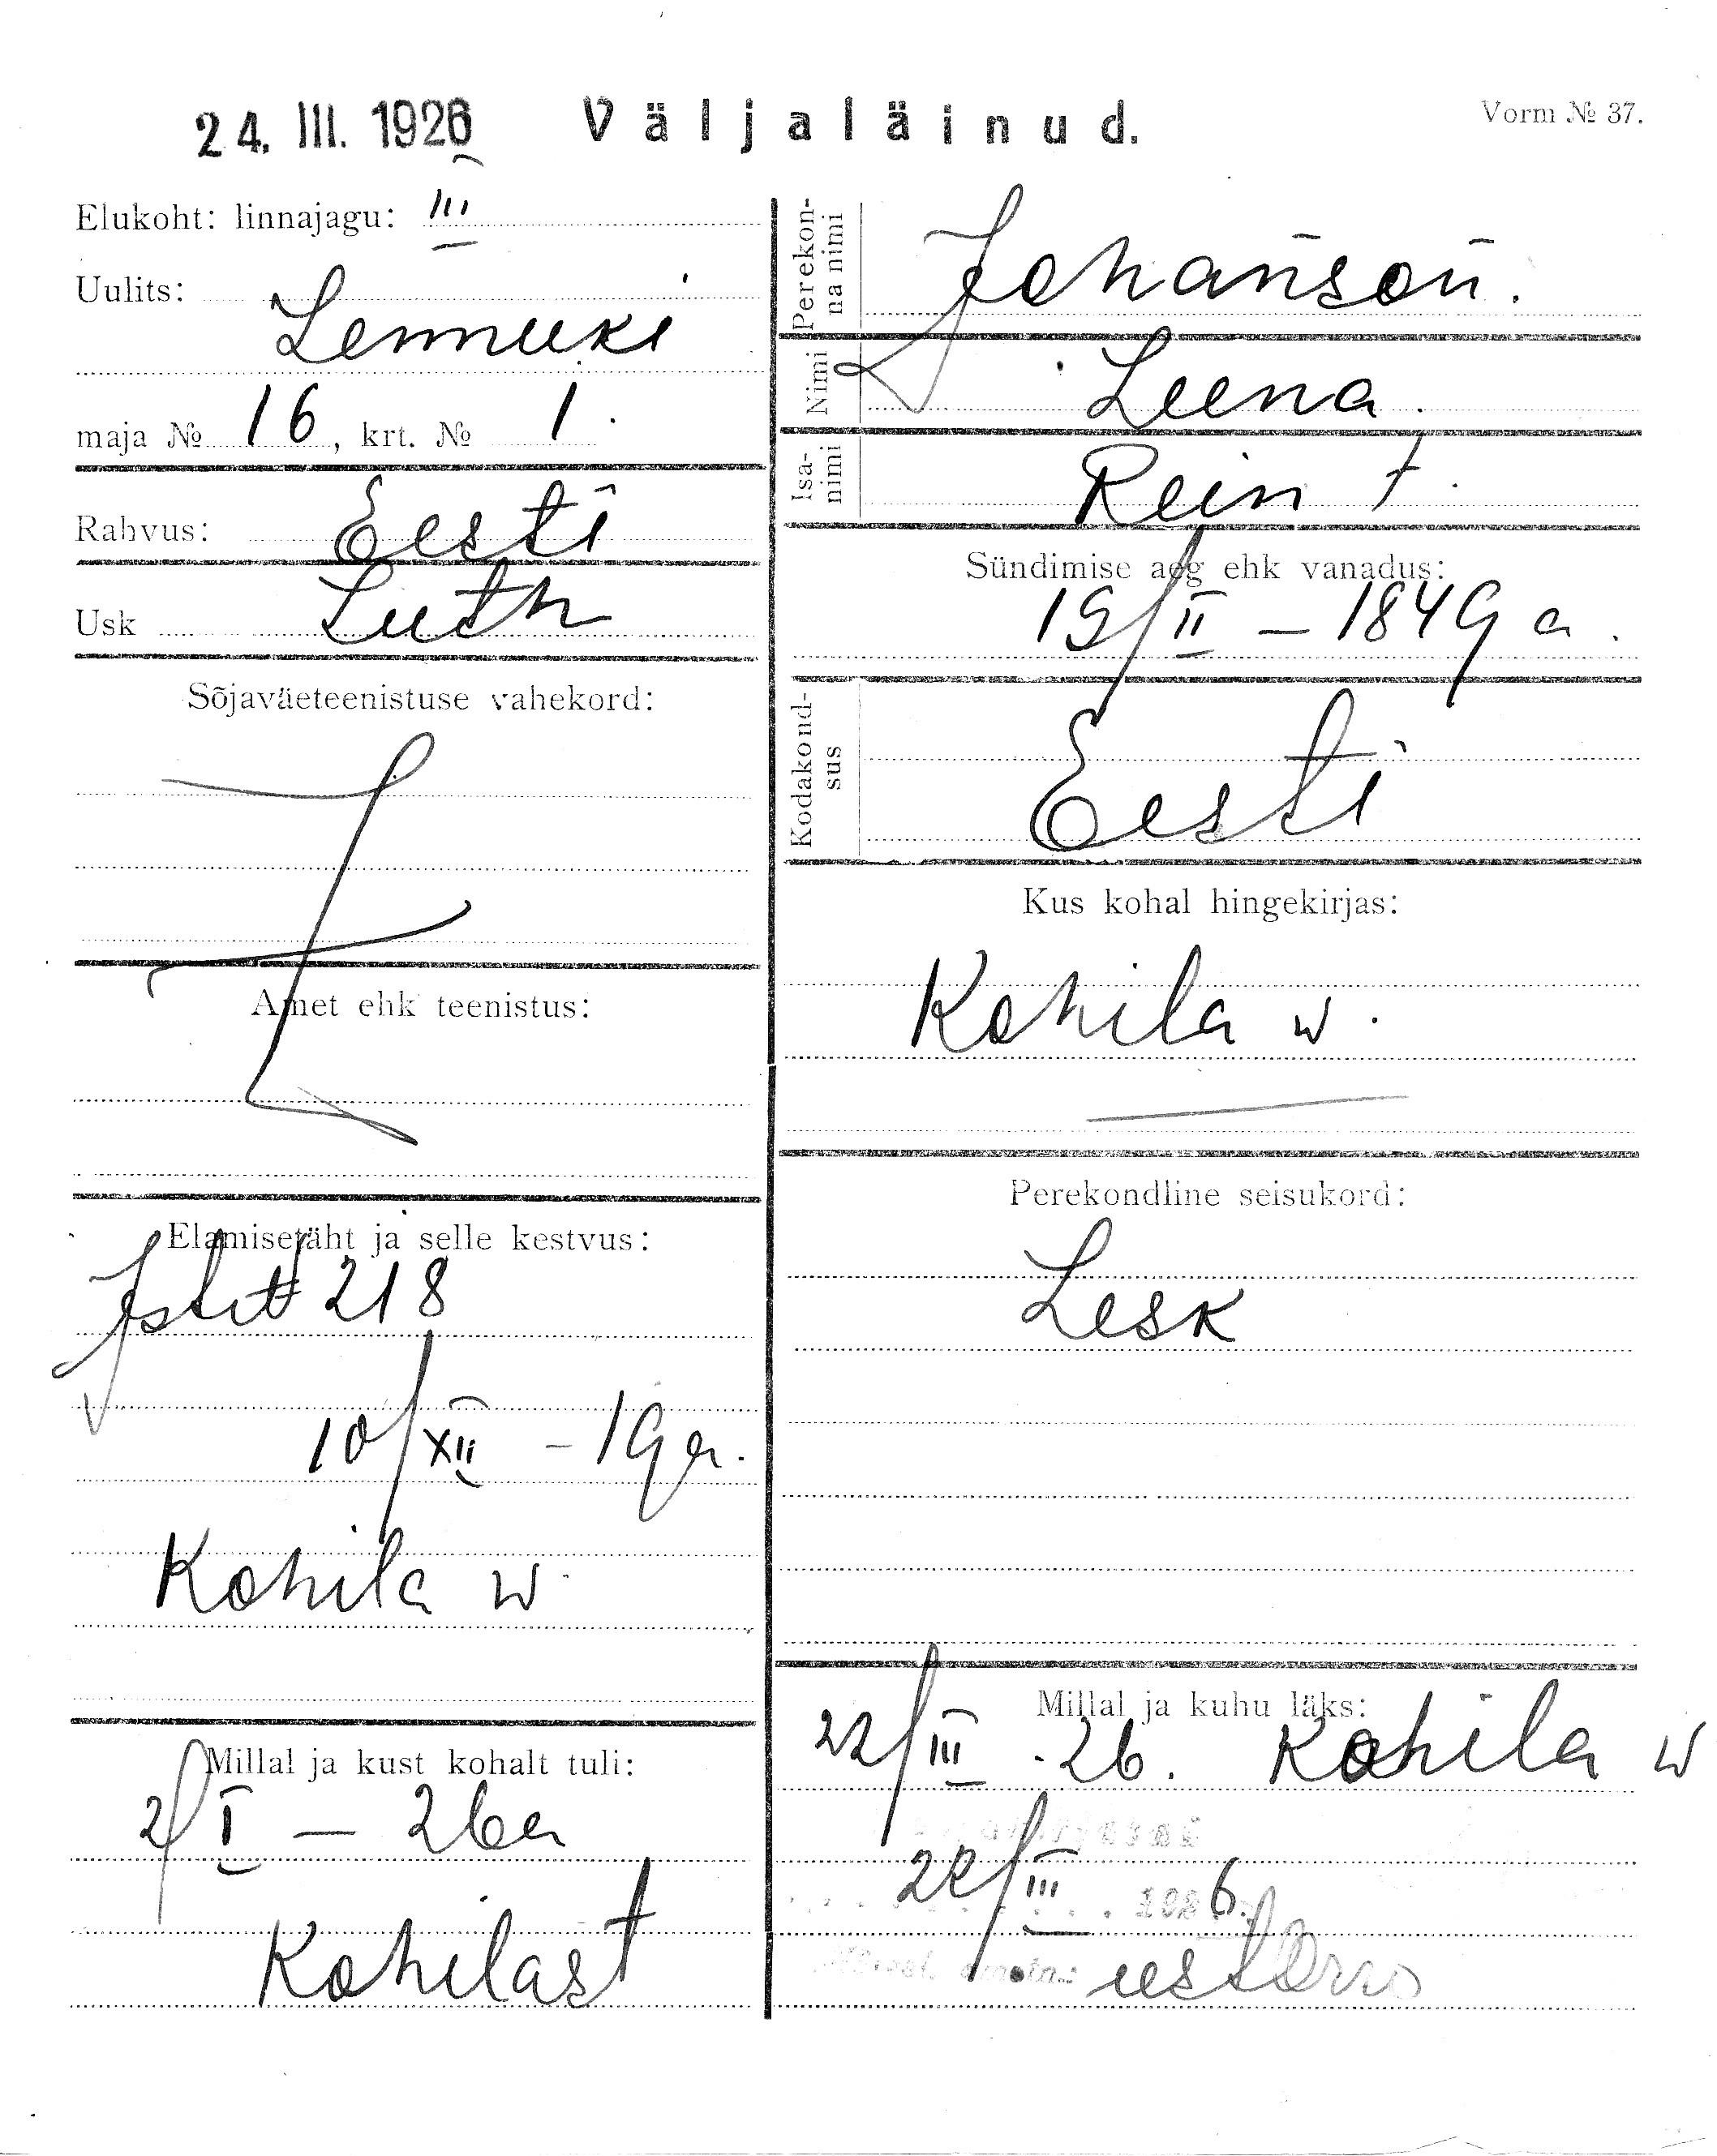 24. III. 1926 Väljaläinud. Vorm № 37.
Elukoht: linnajagu: III
Uulits:
Lennuki
maja № 16, krt. № 1.
Rahvus: Eesti
Usk Luth
Sõjaväeteenistuse vahekord:
Amet ehk teenistus:
Elamisetäht ja selle kestvus:
218
10/XII - 19 a.
Kohila w.
Millal ja kust kohalt tuli:
2/I - 26 a
Kohilast
Perekonna nimi Johanson.
Nimi Leena.
Isanimi Rein †.
Sündimise aeg ehk vanadus:
19/II - 1849 a.
Kodakondsus
Eesti
Kus kohal hingekirjas:
Kohila w.
Perekondline seisukord:
Lesk
Millal ja kuhu läks:
22/III - 26. Kohila w
22/III 1926.